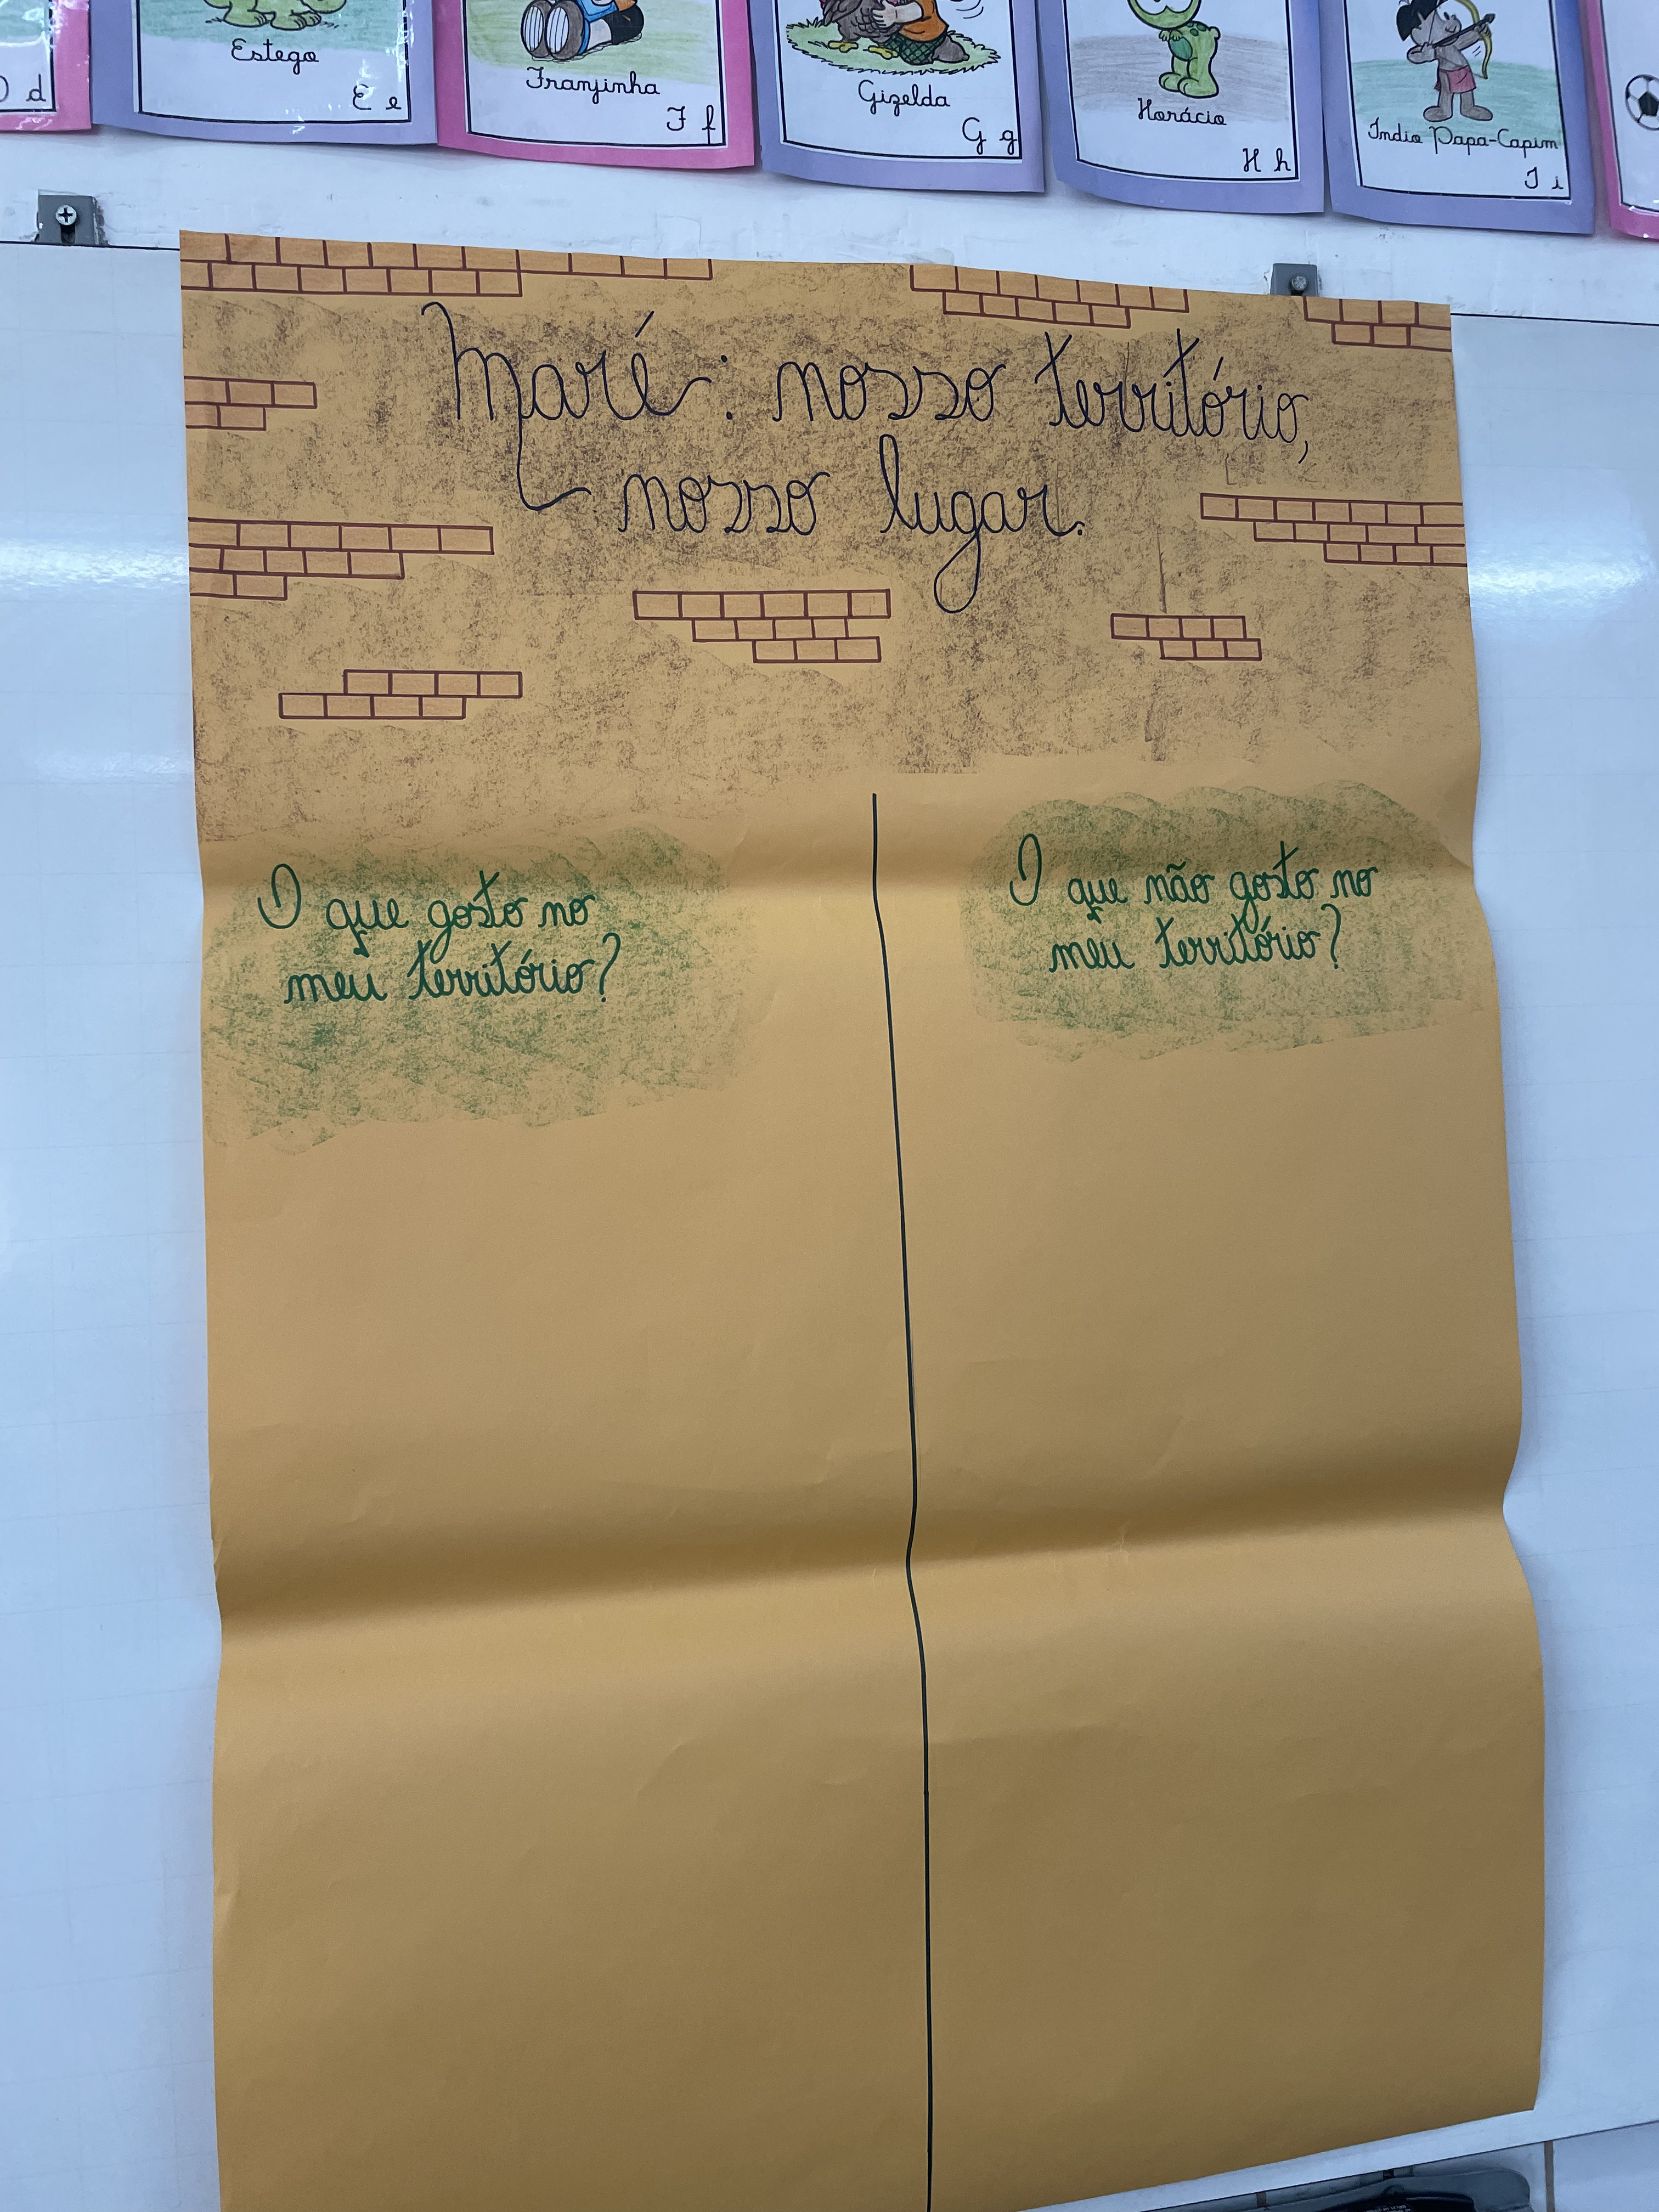 D d
Estego
E e
Franjinha
F f
Gizelda
G g
Horácio
H h
Índio Papa-Capim
I i
Maré: nosso território,
nosso lugar.
O que gosto no
meu território?
O que não gosto no
meu território?